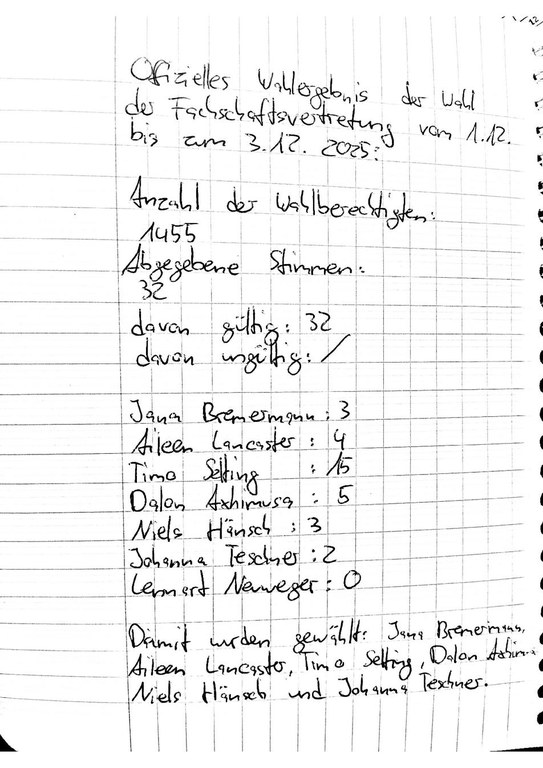 Offizielles Wahlergebnis der Wahl
der Fachschaftsvertretung vom 1.12.
bis zum 3.12. 2025:
Anzahl der Wahlberechtigten:
1455
Abgegebene Stimmen:
32
davon gültig: 32
davon ungültig: /
Jana Bremermann: 3
Aileen Lancaster: 4
Timo Selting : 15
Dalon Axhimusa : 5
Niels Hänsch : 3
Johanna Teschner : 2
Lennart Neuweger : 0
Damit wurden gewählt: Jana Bremermann,
Aileen Lancaster, Timo Selting, Dalon
Niels Hänsch und Johanna Teschner.